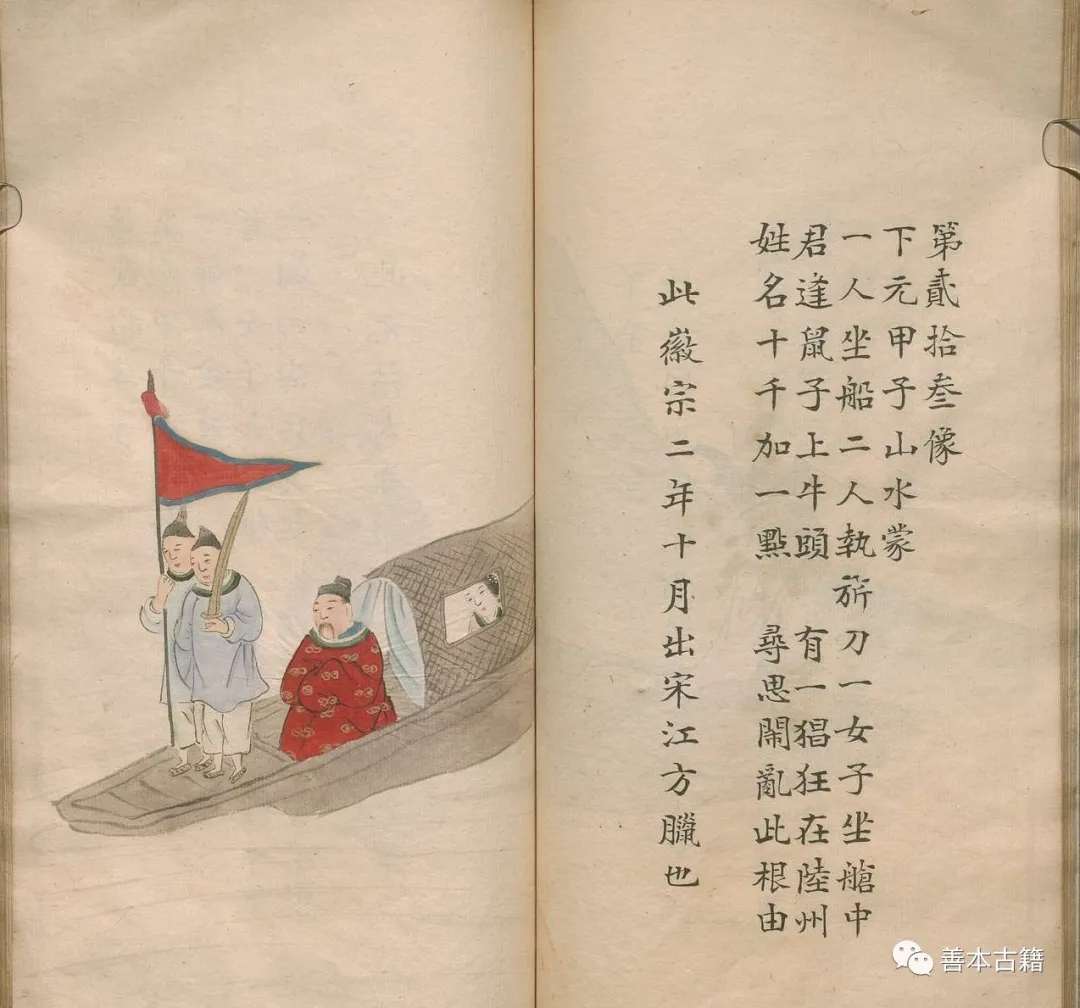 第貳拾叁像
下元甲子山水蒙
一人坐船二人執旂刀一女子坐艙中
君逢鼠子上牛頭 有一猖狂在陸州
姓名十千加一點 尋思鬧亂此根由
此徽宗二年十月出宋江方臘也
善本古籍